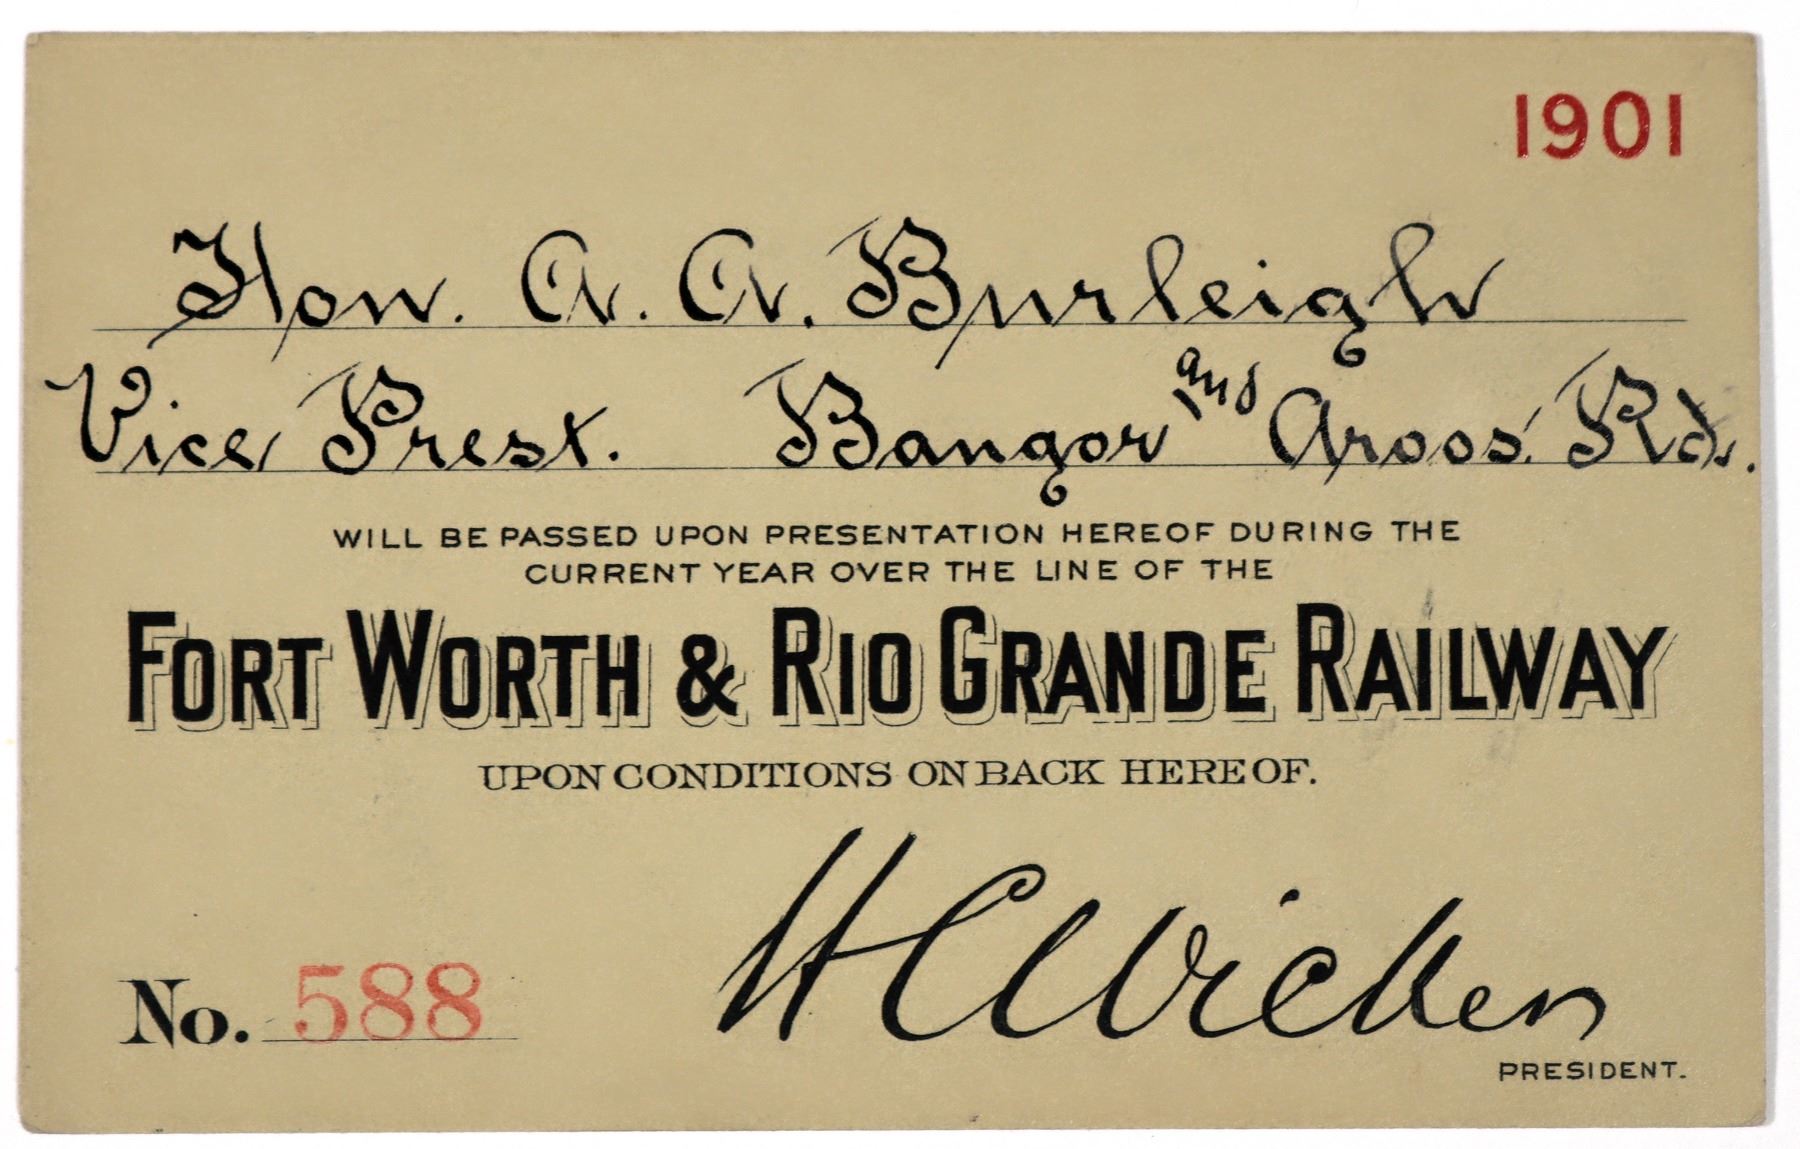 1901
Hon. A. A. Burleigh
Vice Prest. Bangor and Aroos. Rd.
WILL BE PASSED UPON PRESENTATION HEREOF DURING THE
CURRENT YEAR OVER THE LINE OF THE
FORT WORTH & RIO GRANDE RAILWAY
UPON CONDITIONS ON BACK HEREOF.
No. 588
PRESIDENT.